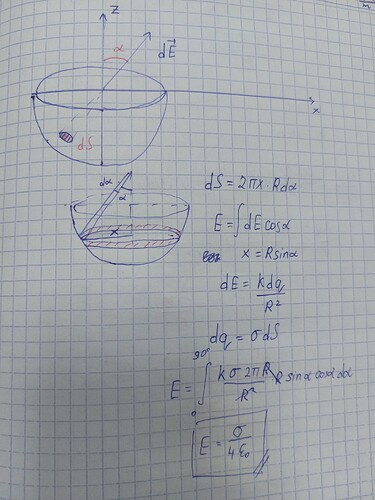 z
α
dE⃗
x
dS
dα
α
x
dS = 2πx · Rdα
E = ∫ dE cosα
x = R sinα
dE = k dq / R²
dq = σ dS
E = ∫₀^90° k σ 2πR / R² R sinα cosα dα
E = σ / 4ε₀